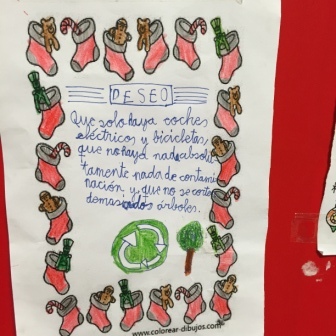 DESEO
Que solo haya coches
eléctricos y bicicletas,
que no haya nada absolu
tamente nada de contami
nación, y que no se corten
demasiados árboles.
www.colorear-dibujos.com